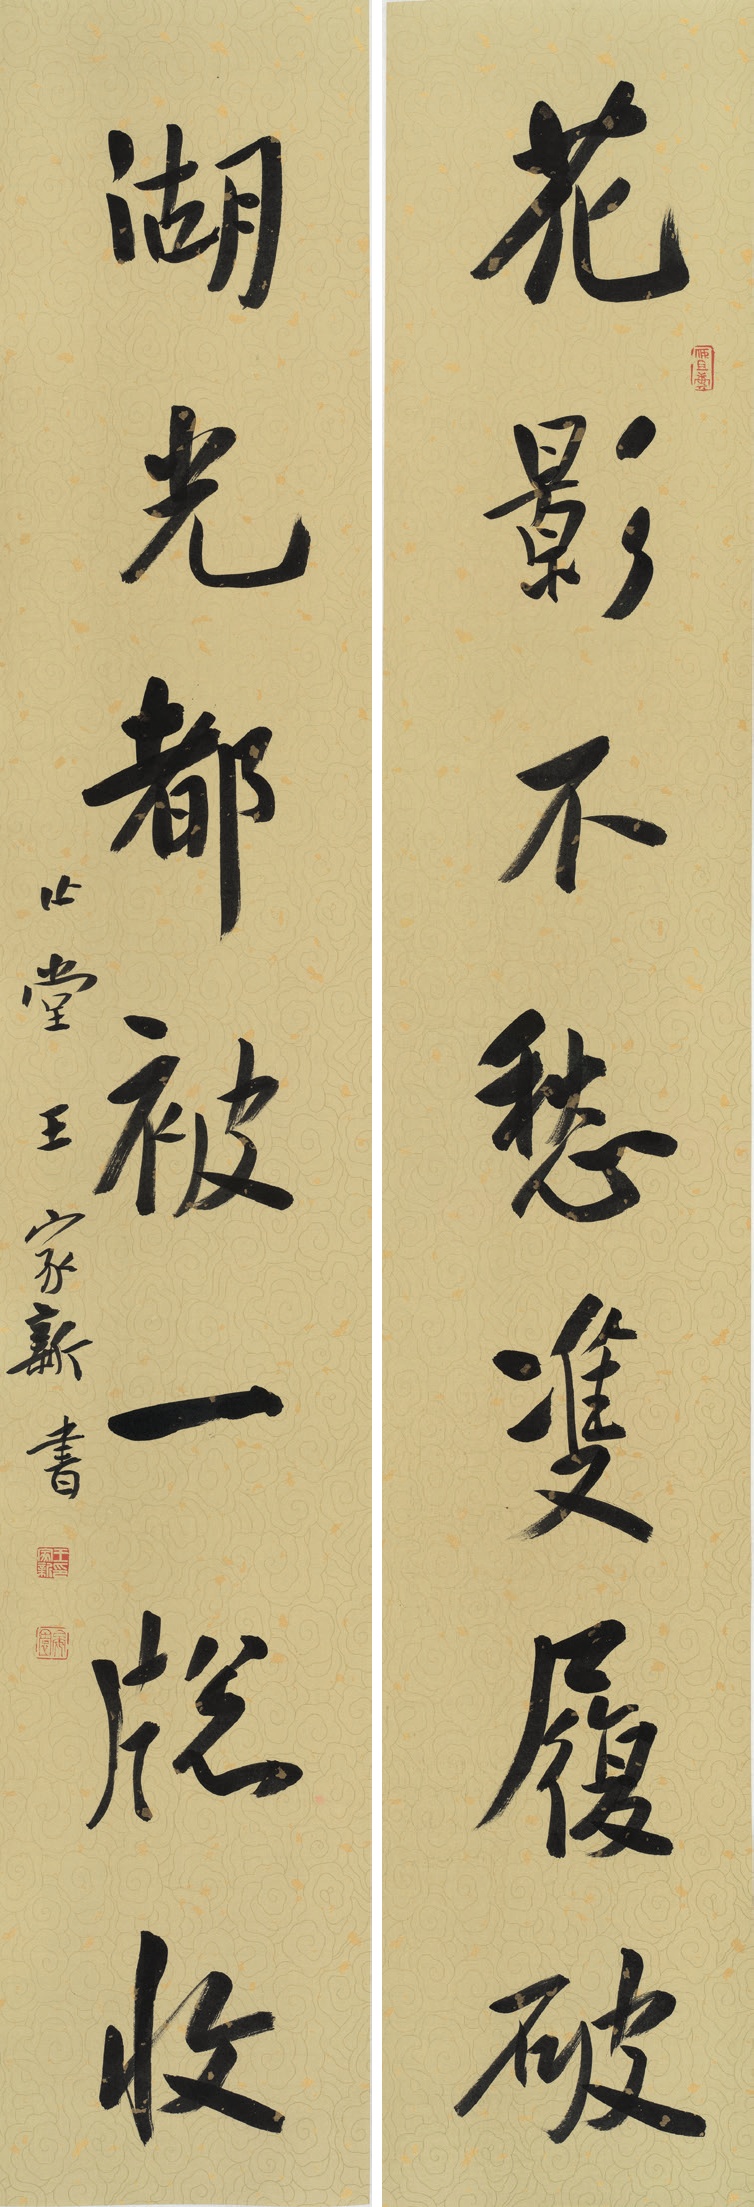 花影不愁雙履破
湖光都被一牎收
堂王家新書
王家新印